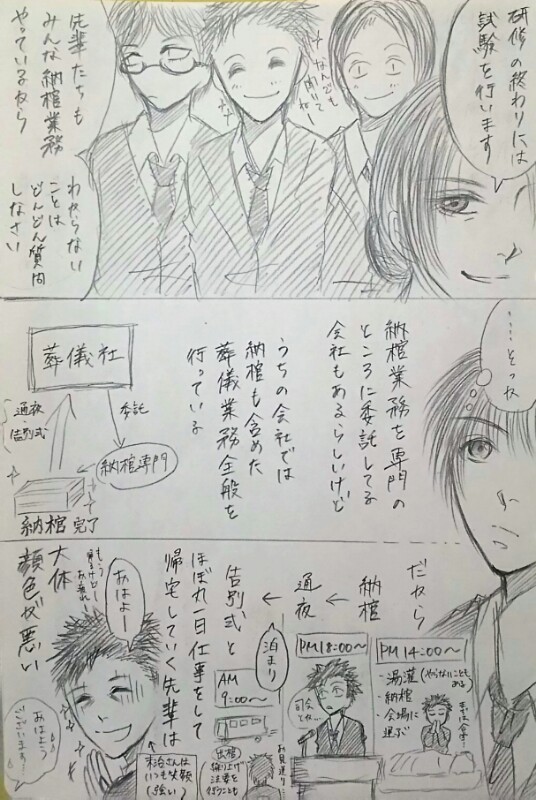 研修の終わりには
試験を行います
なんでも
聞いて
ねー
先輩たちも
みんな納棺業務
やっているから
わからない
ことは
どんどん質問
しなさい
納棺業務を専門の
ところに委託してる
会社もあるらしいけど
うちの会社では
納棺も含めた
葬儀業務全般を
行っている
葬儀社
委託
納棺専門
通夜
告別式
納棺完了
だから
納棺
↓
通夜
↓
告別式と
ほぼ丸一日仕事をして
帰宅していく先輩は
大体
顔色が悪い
PM14:00〜
・湯灌(やらないことも
ある)
・納棺
・会場に
運ぶ
PM18:00〜
司会
とか…
泊まり
AM
9:00〜
お見送り
出棺
繰り上げ
法要を
行うことも
おはよー
おはよう
ございます…
末治さんは
いつも笑顔
(強い)